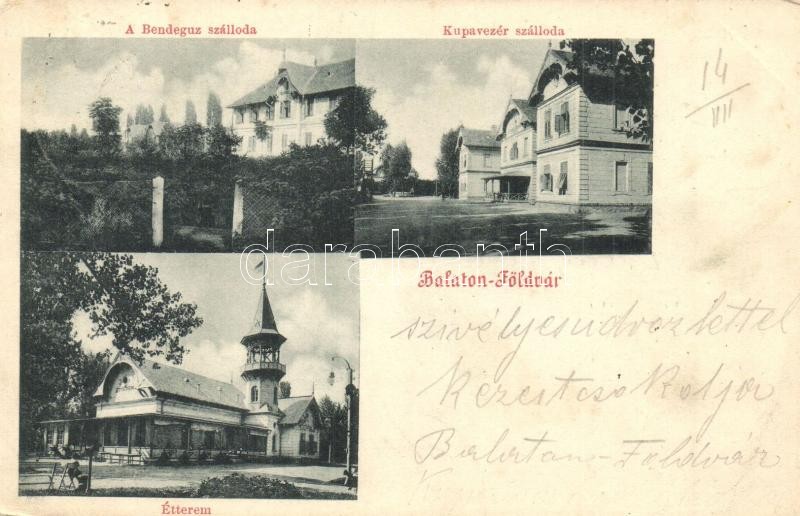 A Bendeguz szálloda
Kupavezér szálloda
14/VII
darabanth.com
Balaton-Földvár
szivélyes üdvözlettel
kezeit csokolja
Balaton-Földvár
Étterem